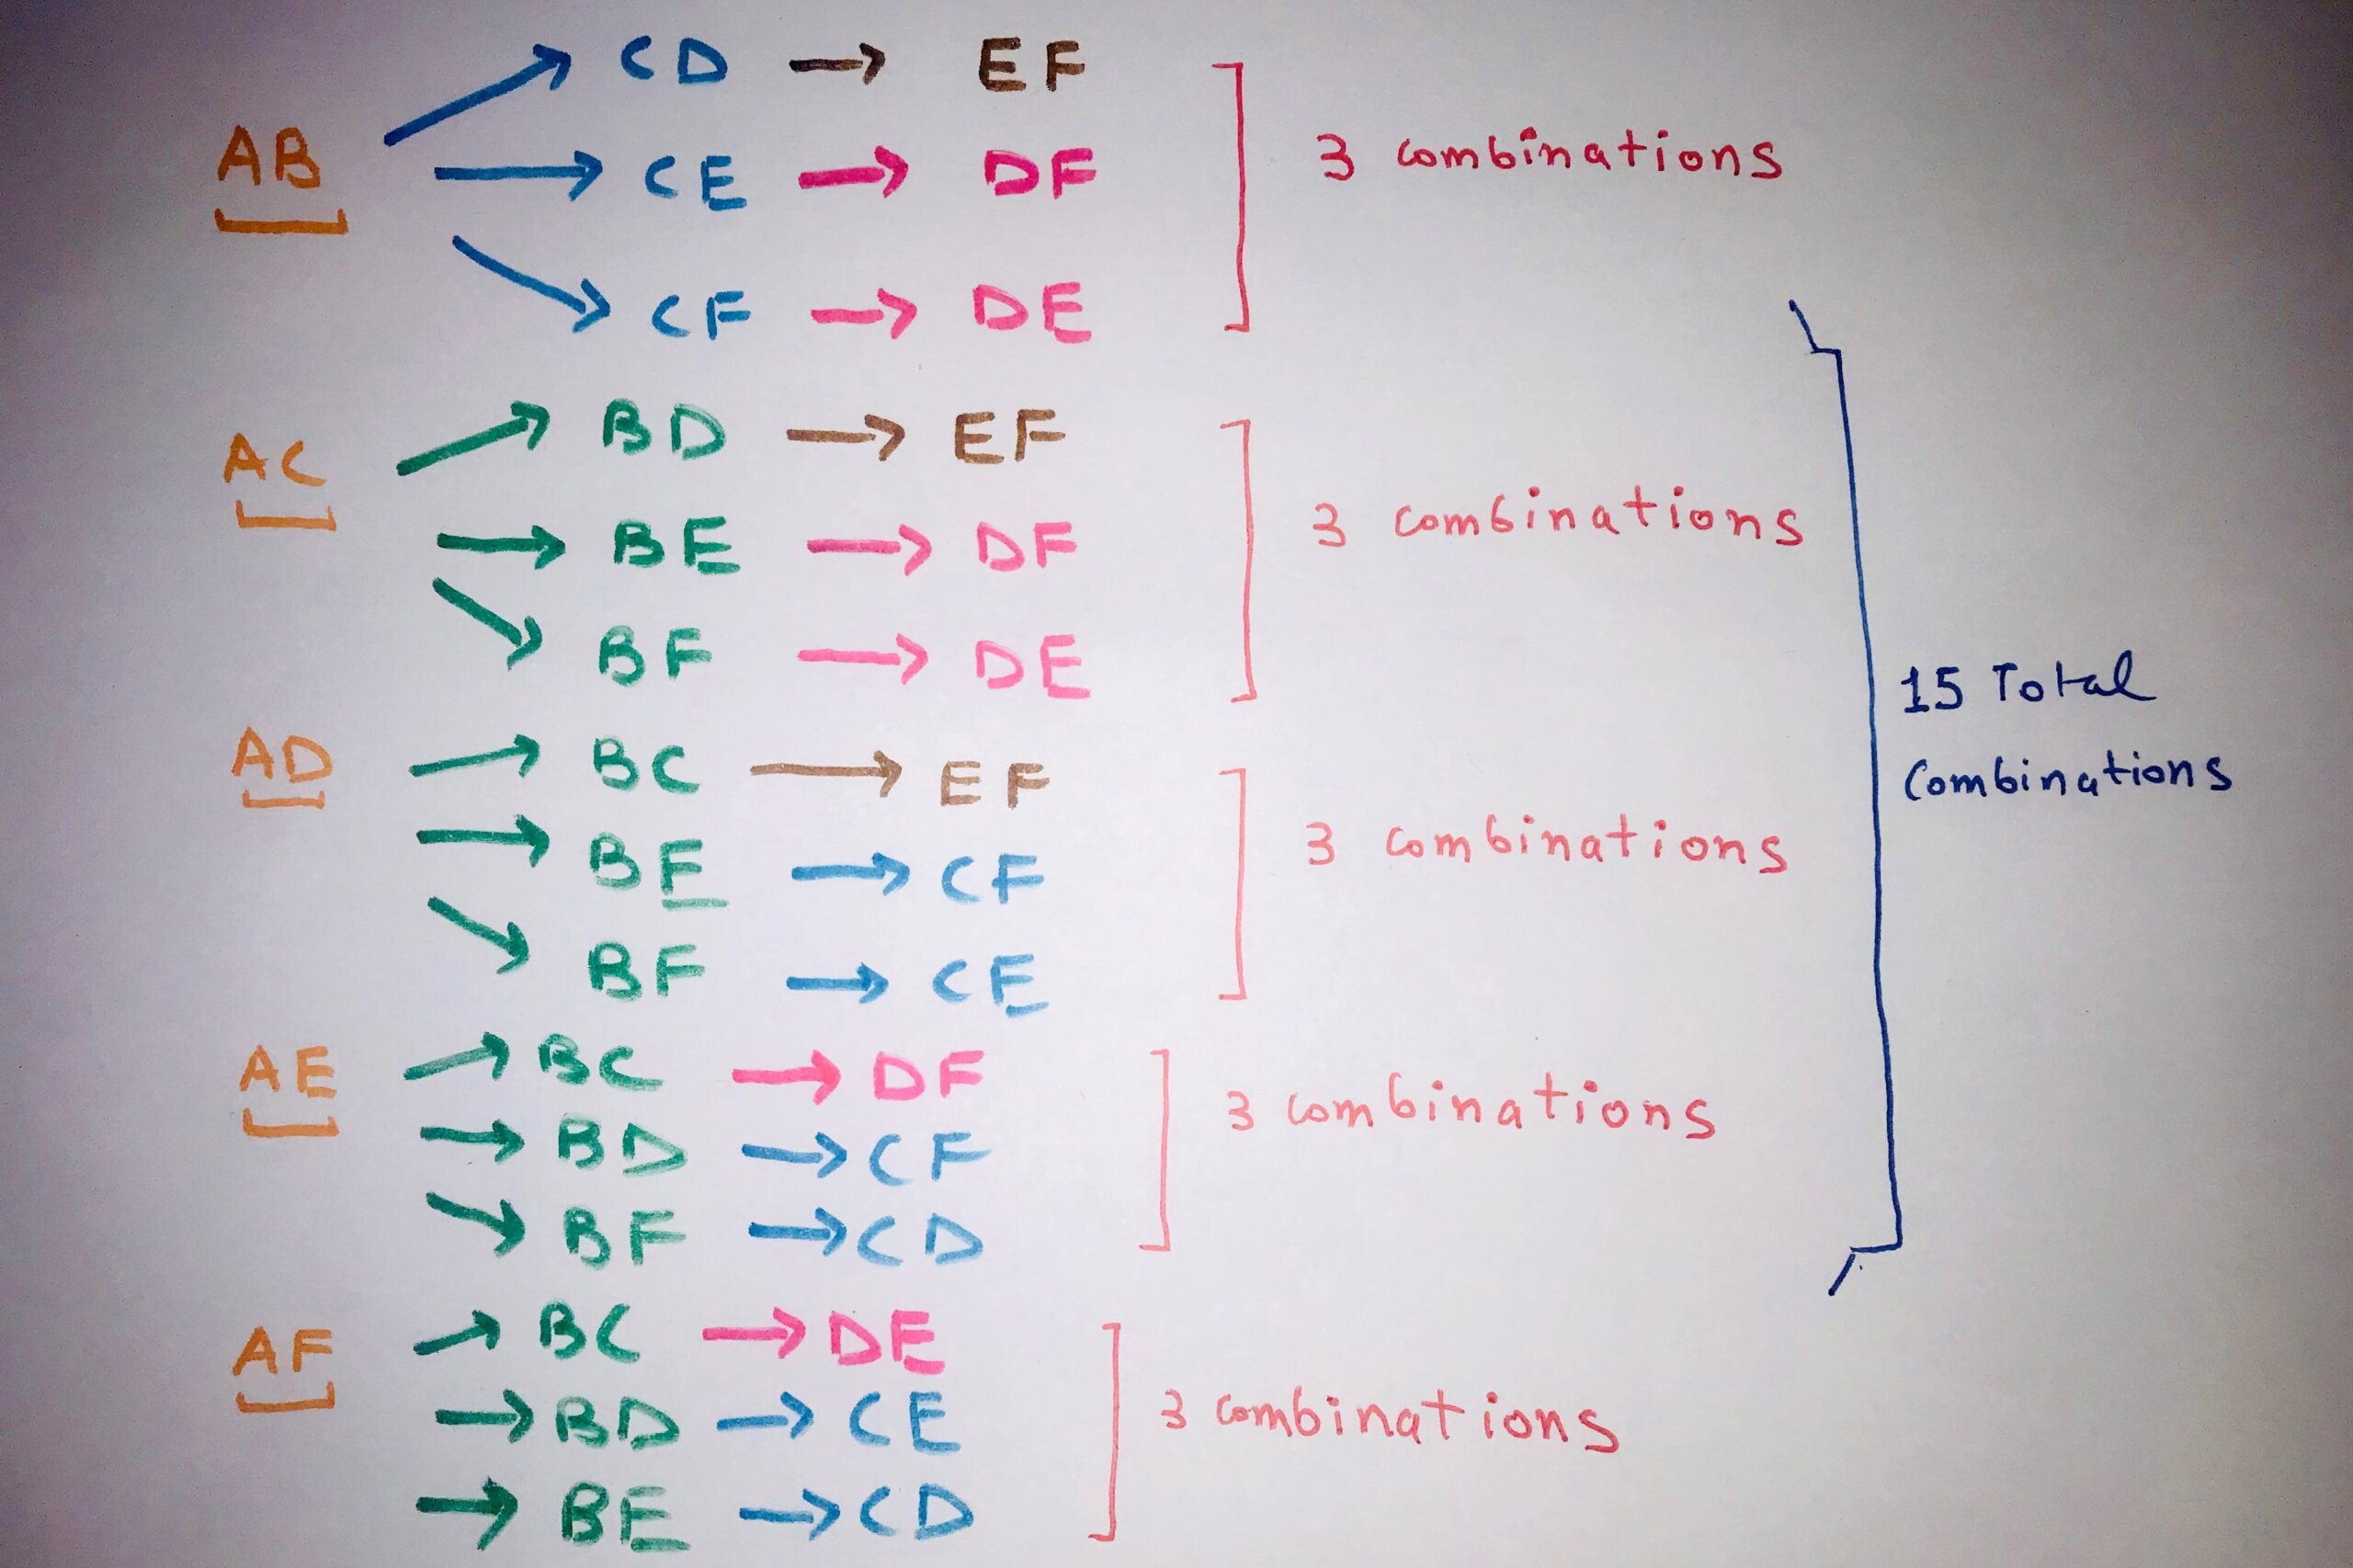 AB → CD → EF
→ CE → DF
→ CF → DE
3 combinations
AC → BD → EF
→ BE → DF
→ BF → DE
3 combinations
AD → BC → EF
→ BE → CF
→ BF → CE
3 combinations
AE → BC → DF
→ BD → CF
→ BF → CD
3 combinations
AF → BC → DE
→ BD → CE
→ BE → CD
3 combinations
15 Total
Combinations